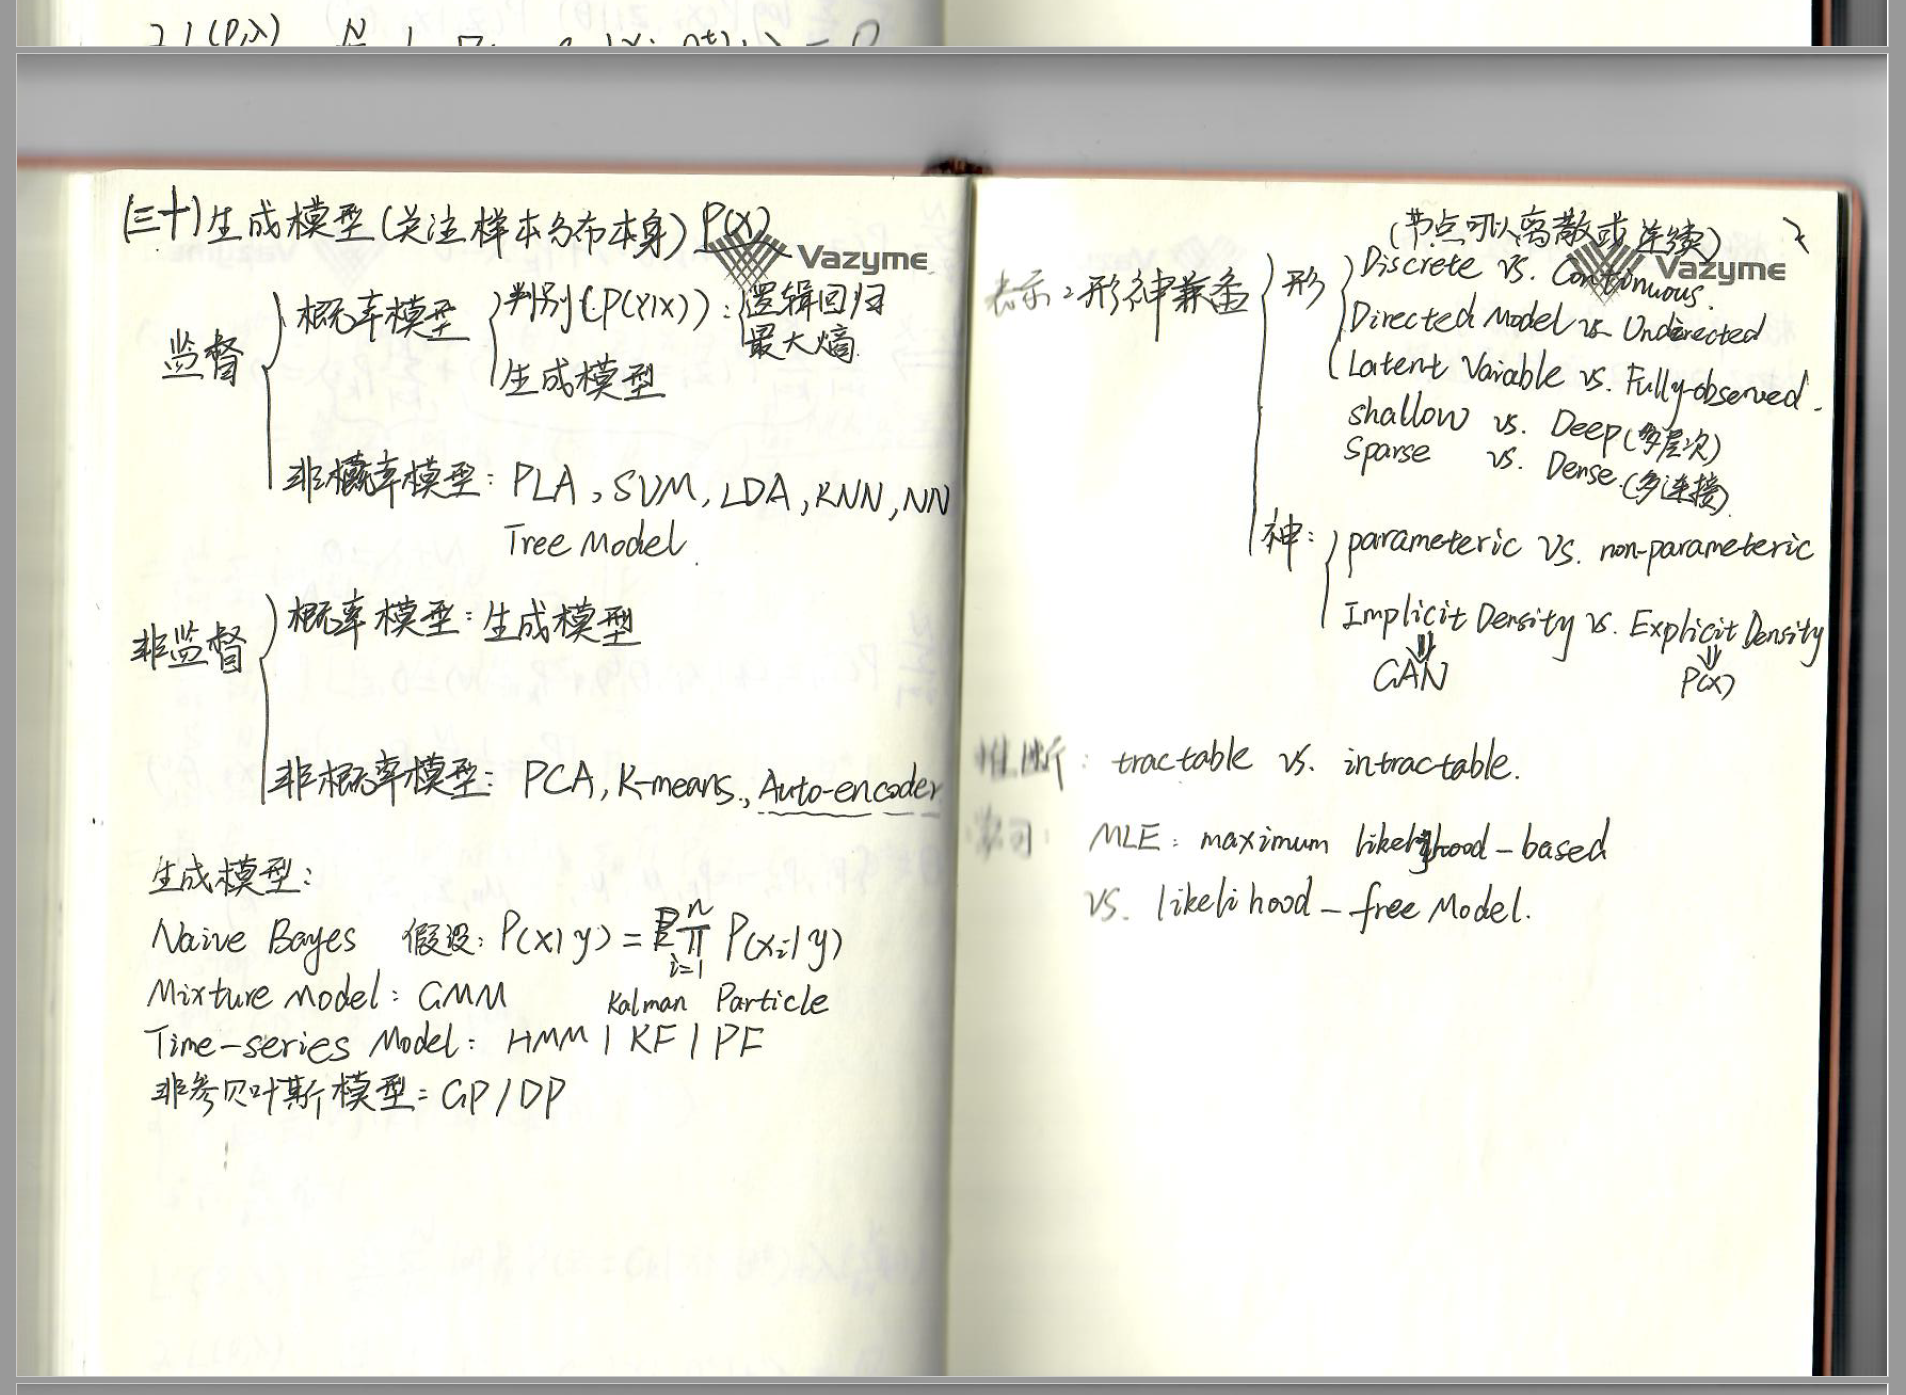 (三十)生成模型(关注样本分布本身) P(X)
Vazyme
监督
概率模型
判别(P(Y|X)): 逻辑回归
最大熵
生成模型
非概率模型: PLA, SVM, LDA, KNN, NN
Tree Model.
非监督
概率模型: 生成模型
非概率模型: PCA, K-means, Auto-encoder
生成模型:
Naive Bayes 假设: P(x|y) = ∏ P(xi|y)
n
i=1
Mixture Model: GMM
Kalman Particle
Time-series Model: HMM | KF | PF
非参贝叶斯模型: GP/DP
(节点可以离散或连续)
Vazyme
表示: 形神兼备
形
Discrete vs. Continuous.
Directed Model vs Undirected
Latent Variable vs. Fully-observed.
shallow vs. Deep(多层次)
Sparse vs. Dense.(多连接)
神:
parameteric vs. non-parameteric
Implicit Density vs. Explicit Density
⇓ ⇓
GAN P(X)
推断: tractable vs. intractable.
学习: MLE: maximum likelihood-based
vs. likelihood-free Model.